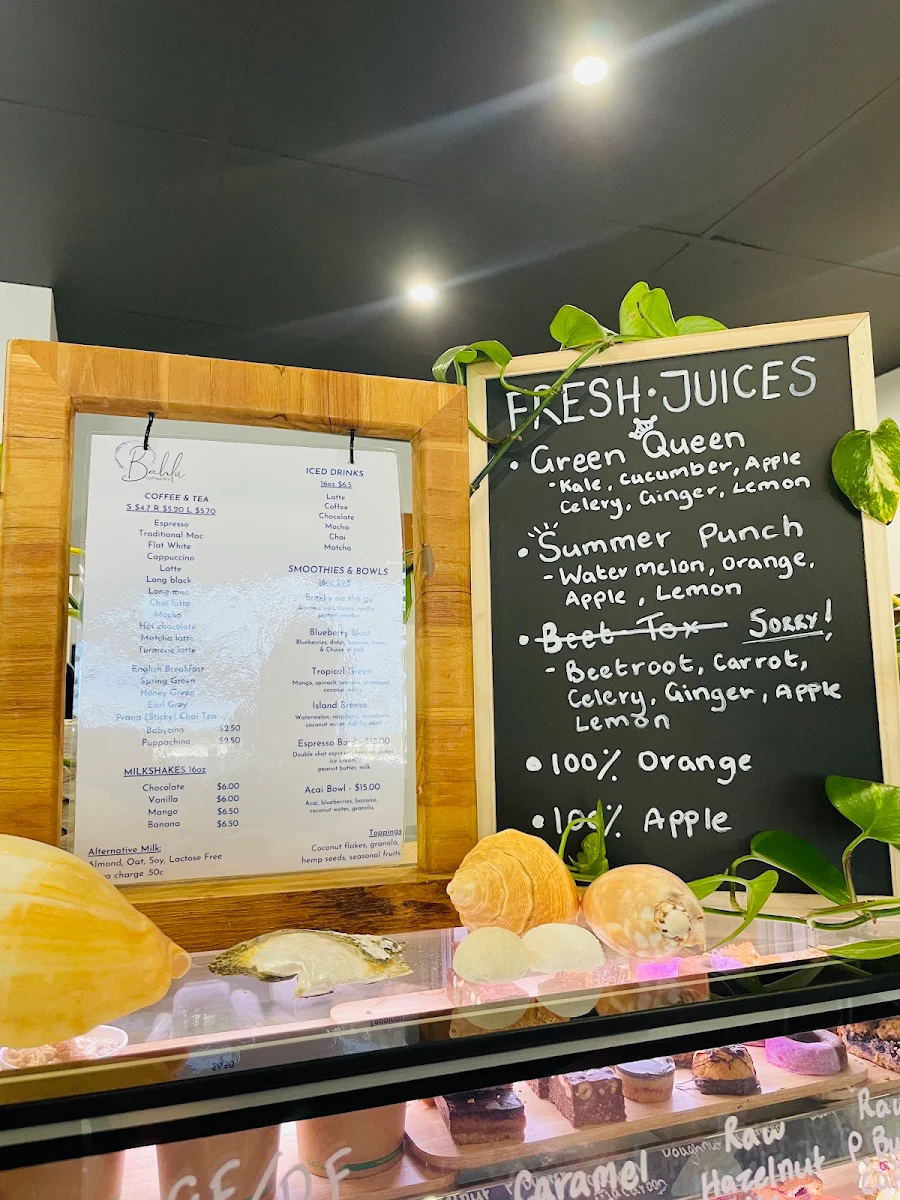 Bahlu
COFFEE & TEA
S $4.7 R $5.20 L $5.70
Espresso
Traditional Mac
Flat White
Cappuccino
Latte
Long black
Long mac
Chai latte
Mocha
Hot chocolate
Matcha latte
Turmeric latte
English Breakfast
Spring Green
Honey Green
Earl Grey
Prana (Sticky) Chai Tea
Babycino $2.50
Puppachino $2.50
MILKSHAKES 16oz
Chocolate $6.00
Vanilla $6.00
Mango $6.50
Banana $6.50
Alternative Milk:
Almond, Oat, Soy, Lactose Free
charge .50c
ICED DRINKS
16oz $6.5
Latte
Coffee
Chocolate
Mocha
Chai
Matcha
SMOOTHIES & BOWLS
16oz $9.5
Brekky on the go
Blueberry Blast
Blueberries, dates, banana, honey
& Choice of milk
Tropical Green
Mango, spinach, banana, pineapple
coconut water
Island Breeze
Watermelon, raspberry, strawberry
coconut water
Espresso Bowl - $15.00
Double shot espresso, dates
ice cream,
peanut butter, milk
Acai Bowl - $15.00
Acai, blueberries, banana,
coconut water, granola.
Toppings
Coconut flakes, granola,
hemp seeds, seasonal fruits
FRESH · JUICES
• Green Queen
- Kale, cucumber, Apple
Celery, Ginger, Lemon
• Summer Punch
- Watermelon, Orange,
Apple, Lemon
• Beet Tox SORRY!
- Beetroot, Carrot,
Celery, Ginger, Apple
Lemon
• 100% Orange
• 100% Apple
GF/DF
Caramel
Doughnut
Raw
Hazelnut
Raw